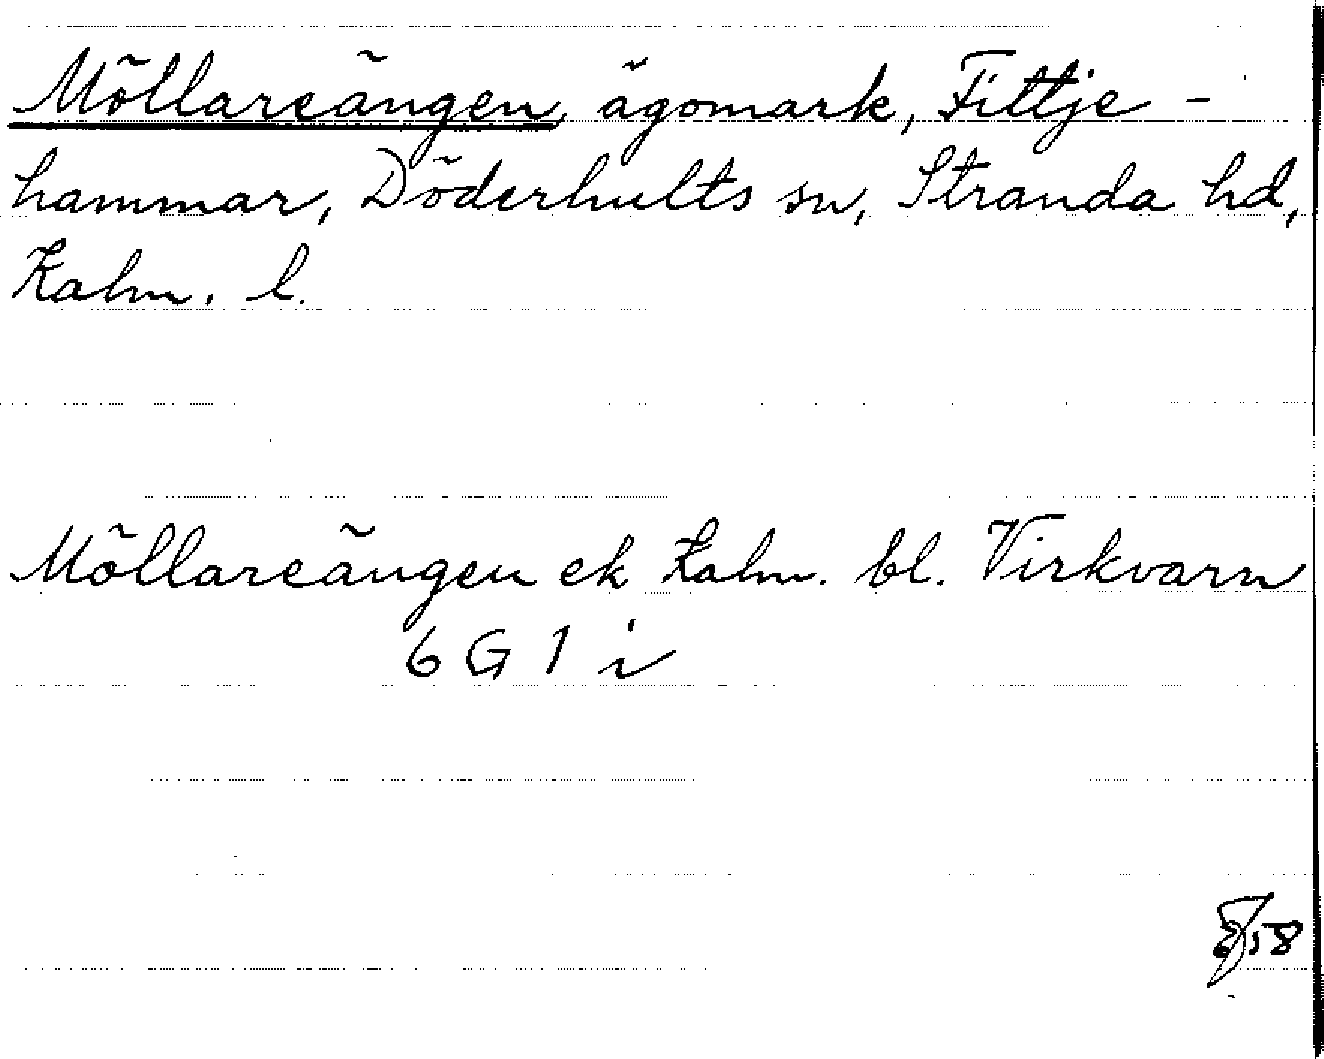 Möllareängen, ägomark, Fittje-
hammar, Döderhults sn, Stranda hd,
Kalm. l.
Möllareängen ek Kalm. bl. Virkvarn
6 G 1 i